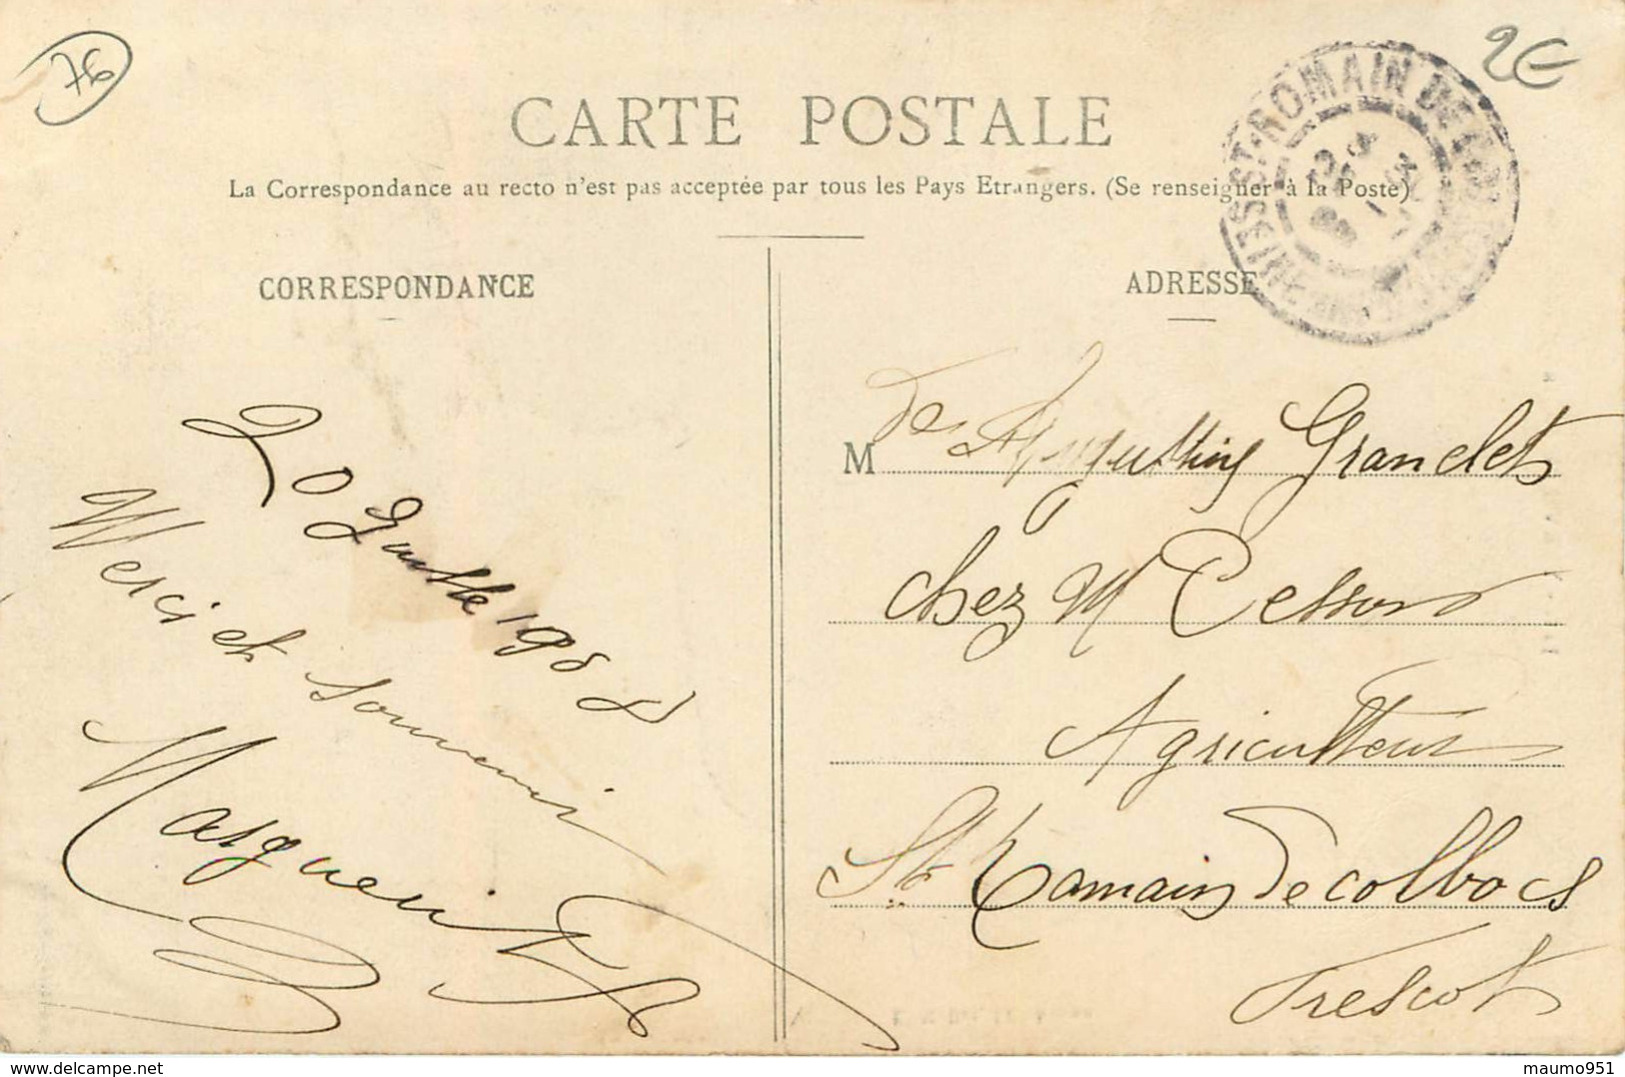 76
2€
CARTE POSTALE
La Correspondance au recto n'est pas acceptée par tous les Pays Etrangers. (Se renseigner à la Poste)
ST-ROMAIN DE
SEINE
CORRESPONDANCE
ADRESSE
20 Juille 1908
Merci et souvenir
Marguerite
M Augustin Grandet
chez M Cesson
Agriculteur
St Romain De colbocs
Trescot
maumo951